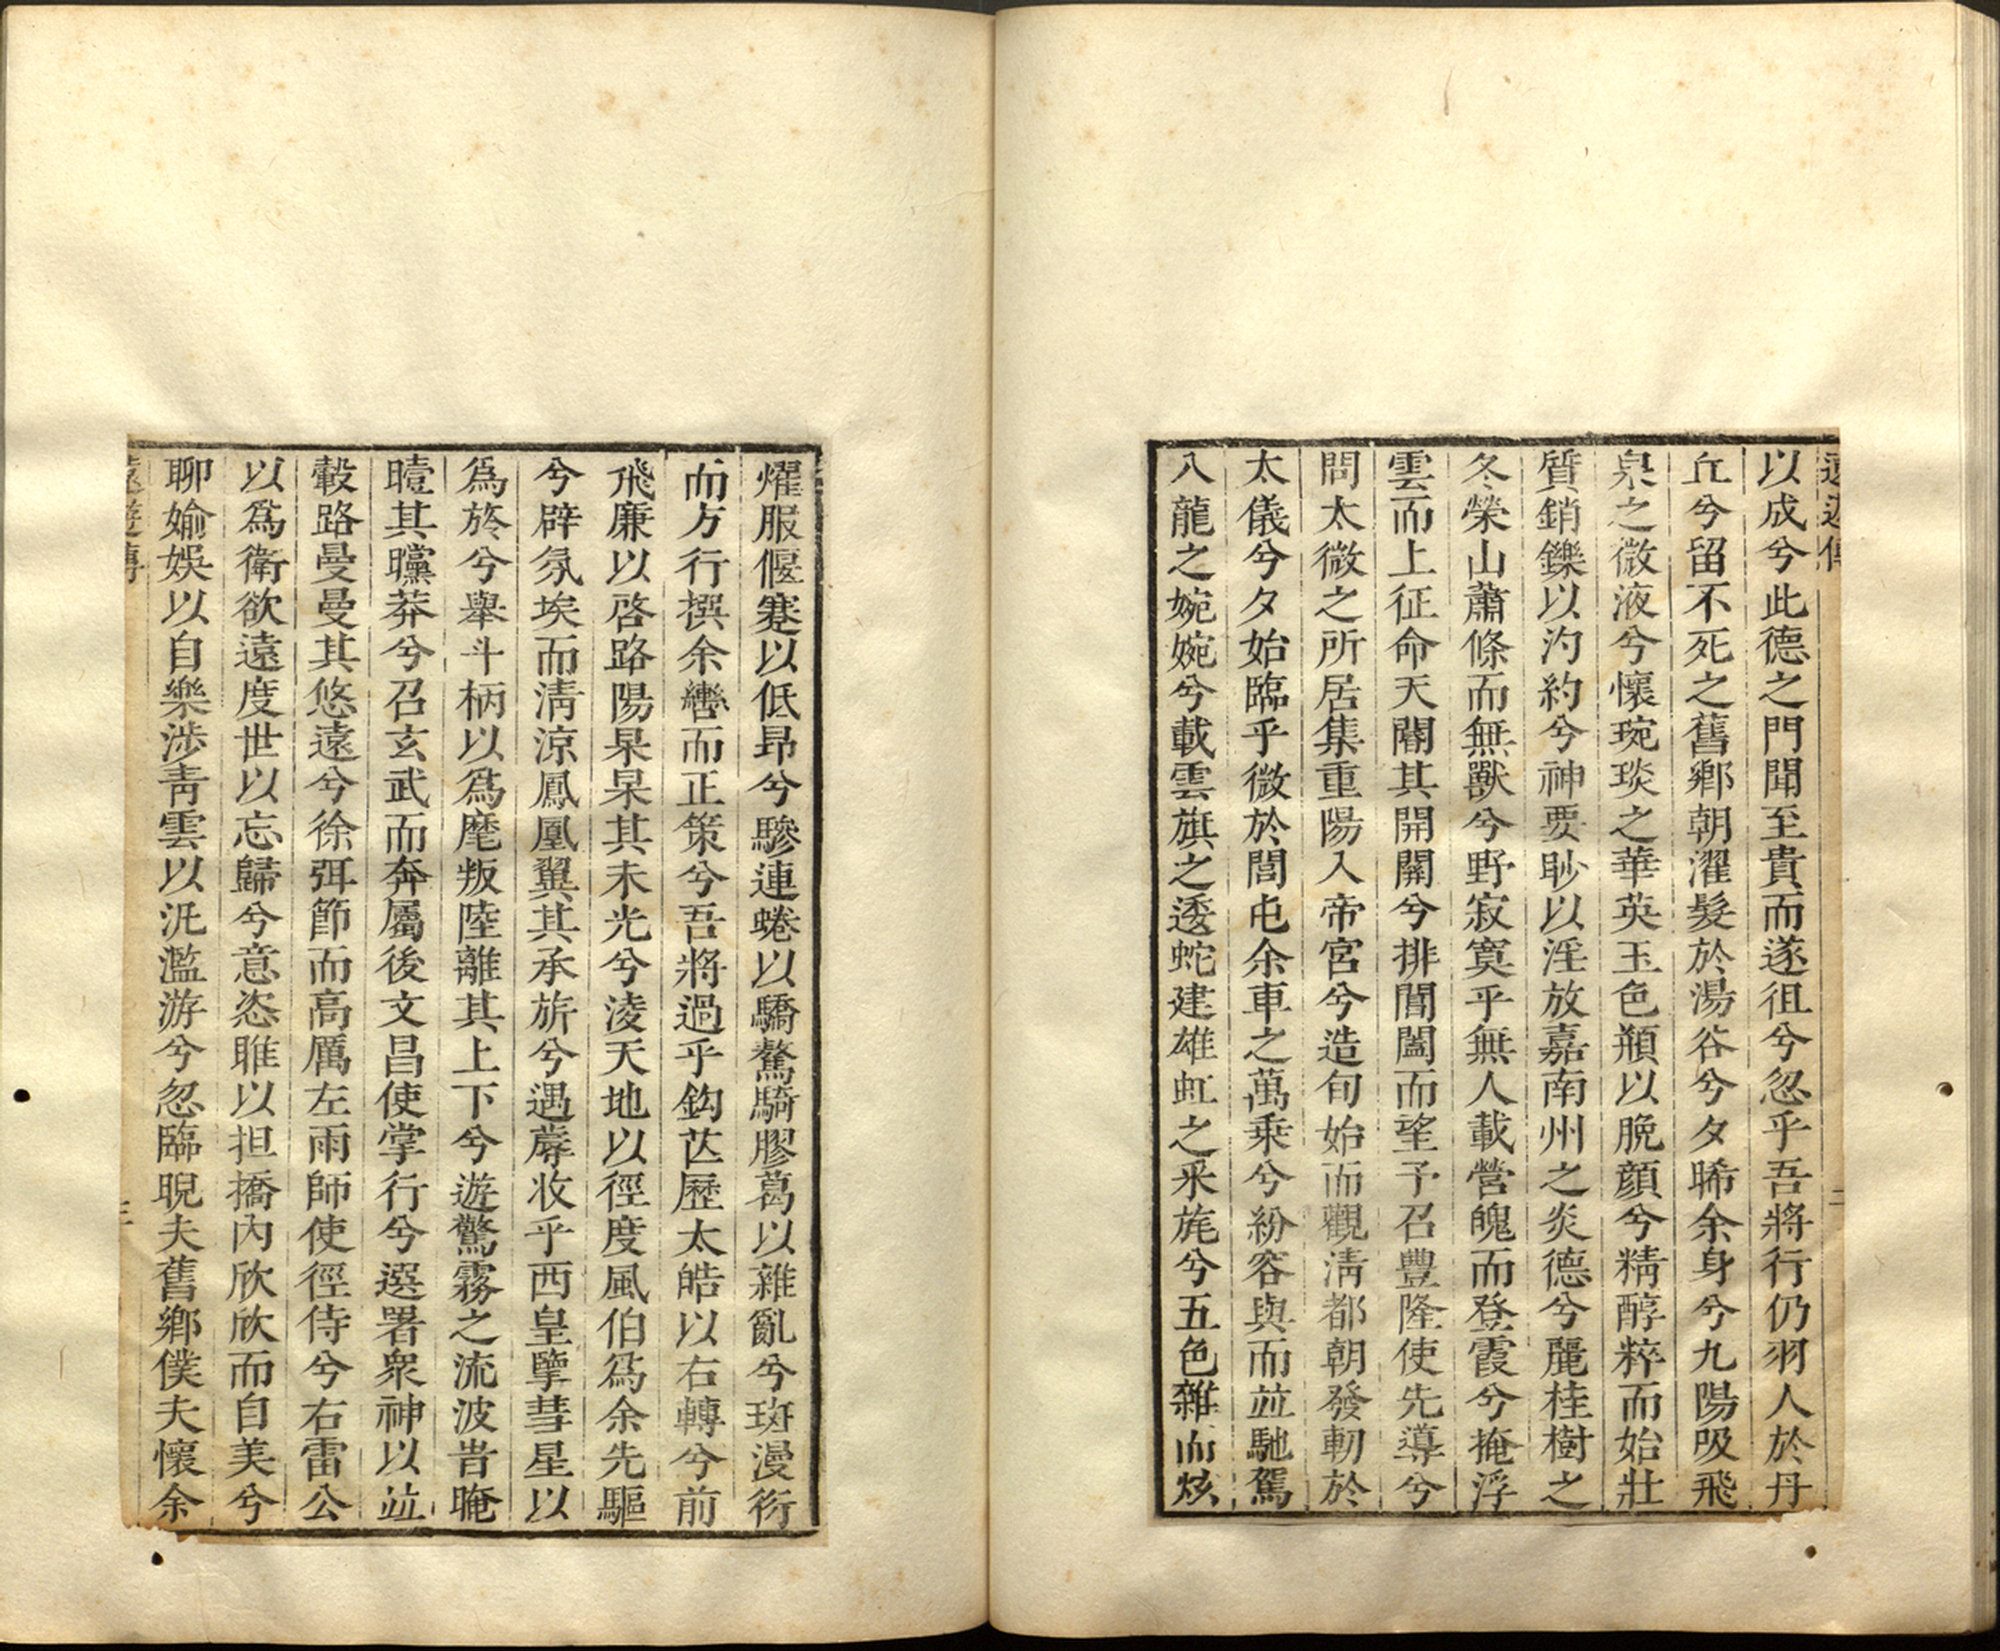 以成兮此德之門聞至貴而遂徂兮忽乎吾將行仍羽人於丹
丘兮留不死之舊鄉朝濯髮於湯谷兮夕晞余身兮九陽吸飛
泉之微液兮懷琬琰之華英玉色頩以脕顏兮精醇粹而始壯
質銷鑠以汋約兮神要眇以淫放嘉南州之炎德兮麗桂樹之
冬榮山蕭條而無獸兮野寂寞乎無人載營魄而登霞兮掩浮
雲而上征命天閽其開關兮排閶闔而望予召豐隆使先導兮
問太微之所居集重陽入帝宮兮造旬始而觀清都朝發軔於
太儀兮夕始臨乎微於閭屯余車之萬乘兮紛容與而並馳駕
八龍之婉婉兮載雲旗之逶蛇建雄虹之采旄兮五色雜而炫
燿服偃蹇以低昂兮驂連蜷以驕驁騎膠葛以雜亂兮斑漫衍
而方行撰余轡而正策兮吾將過乎鈎芒歷太皓以右轉兮前
飛廉以啓路陽杲杲其未光兮淩天地以徑度風伯爲余先驅
兮辟氛埃而清涼鳳凰翼其承旂兮遇蓐收乎西皇擥彗星以
爲旍兮舉斗柄以爲麾叛陸離其上下兮遊驚霧之流波旹晻
曀其曭莽兮召玄武而奔屬後文昌使掌行兮選署衆神以並
轂路曼曼其悠遠兮徐弭節而高厲左雨師使徑侍兮右雷公
以爲衛欲遠度世以忘歸兮意恣睢以担撟內欣欣而自美兮
聊婾娛以自樂涉青雲以汎濫游兮忽臨睨夫舊鄉僕夫懷余
遠遊傳
三